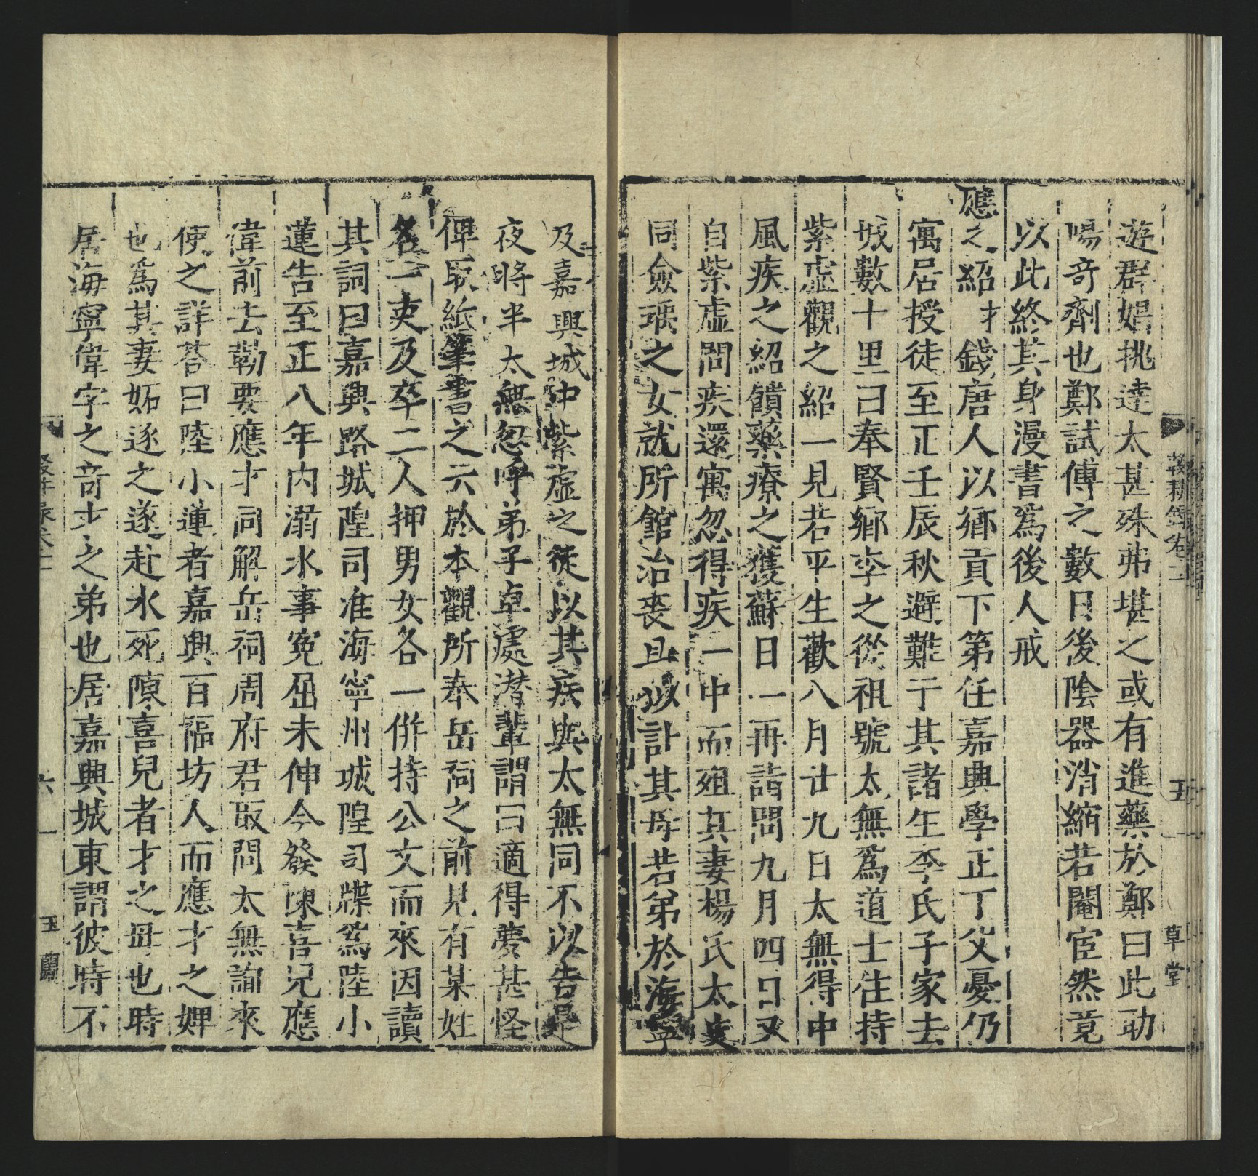 遊群娼挑達太甚殊弗堪之或有進藥於鄭曰此助
陽奇劑也鄭試傳之數日後陰器消縮若閹宦然竟
以此終其身漫書爲後人戒
應之紹才錢唐人以鄉貢下第任嘉興學正丁父憂仍
寓居授徒至正壬辰秋避難于其諸生李氏子家去
城數十里曰奉賢鄉李之從祖號太無爲道士住持
紫虛觀之紹一見若平生歡八月廿九日太無得中
風疾之紹饋藥療之獲蘇日一再詣問九月四日又
自紫虛問疾還寓忽得疾一中而殂其妻楊氏太史
同僉瑀之女就所館治喪且 訃其母若弟於海寧
五
草堂
及嘉興城中紫虛之徒以其疾與太無同不以告是
夜將半太無忽呼弟子卓處潜輩謂曰適得夢甚怪
俾取紙筆書之云於本觀所奉岳祠之前見有某姓
名一吏及卒二人押男女各一併持公文而來因讀
其詞曰嘉興路城隍司准海寧州城隍司牒爲陸小
蓮告至正八年内溺水事冤屈未伸今發陳喜兒應
偉前去勒要應才同解岳祠周府君取問太無詢來
使之詳荅曰陸小蓮者嘉興百福坊人而應才之婢
也爲其妻妬逐之遂赴水死陳喜兒者才之母也時
居海寧偉字之奇才之弟也居嘉興城東謂彼時不
六
玉蘭